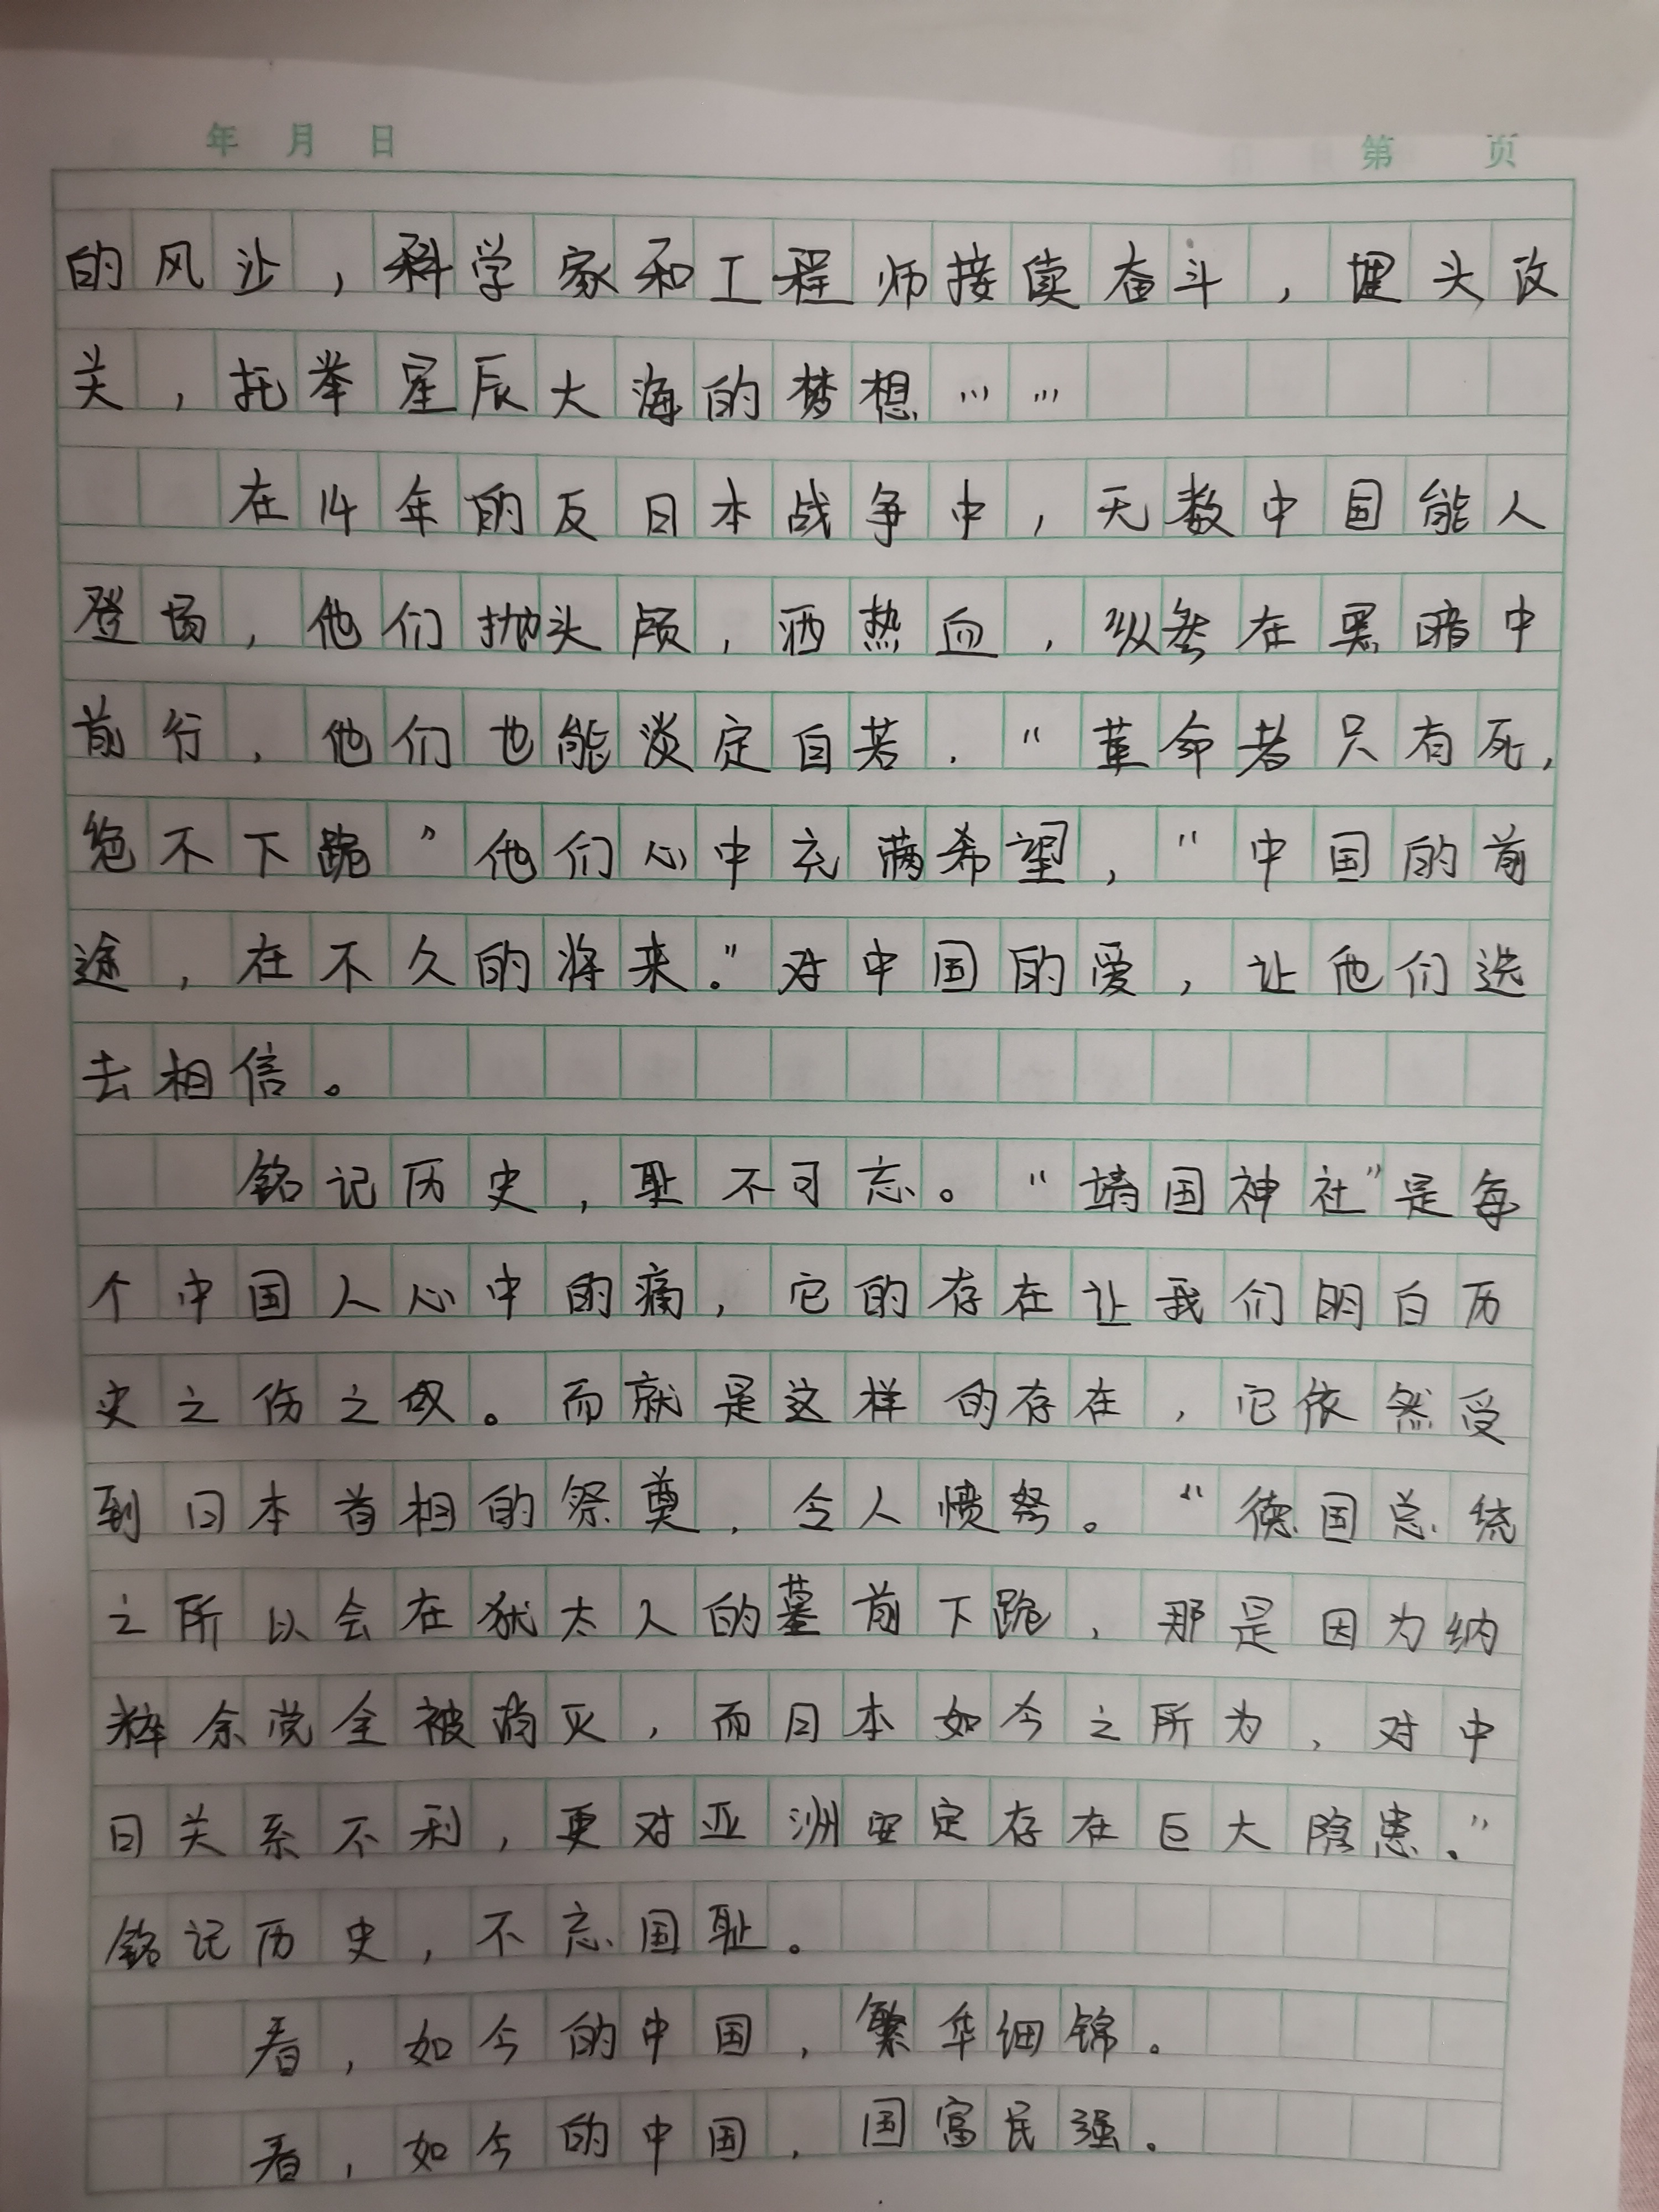 年 月 日 第 页
的风沙，科学家和工程师接续奋斗，埋头攻
关，托举星辰大海的梦想……
在14年的反日本战争中，无数中国能人
登场，他们抛头颅，洒热血，纵然在黑暗中
前行，他们也能淡定自若．“革命者只有死，
绝不下跪”他们心中充满希望，“中国的前
途，在不久的将来。”对中国的爱，让他们选
去相信。
铭记历史，耻不可忘。“靖国神社”是每
个中国人心中的痛，它的存在让我们明白历
史之伤之叹。而就是这样的存在，它依然受
到日本首相的祭奠，令人愤怒。“德国总统
之所以会在犹太人的墓前下跪，那是因为纳
粹余党全被消灭，而日本如今之所为，对中
日关系不利，更对亚洲安定存在巨大隐患．”
铭记历史，不忘国耻。
看，如今的中国，繁华细锦。
看，如今的中国，国富民强。